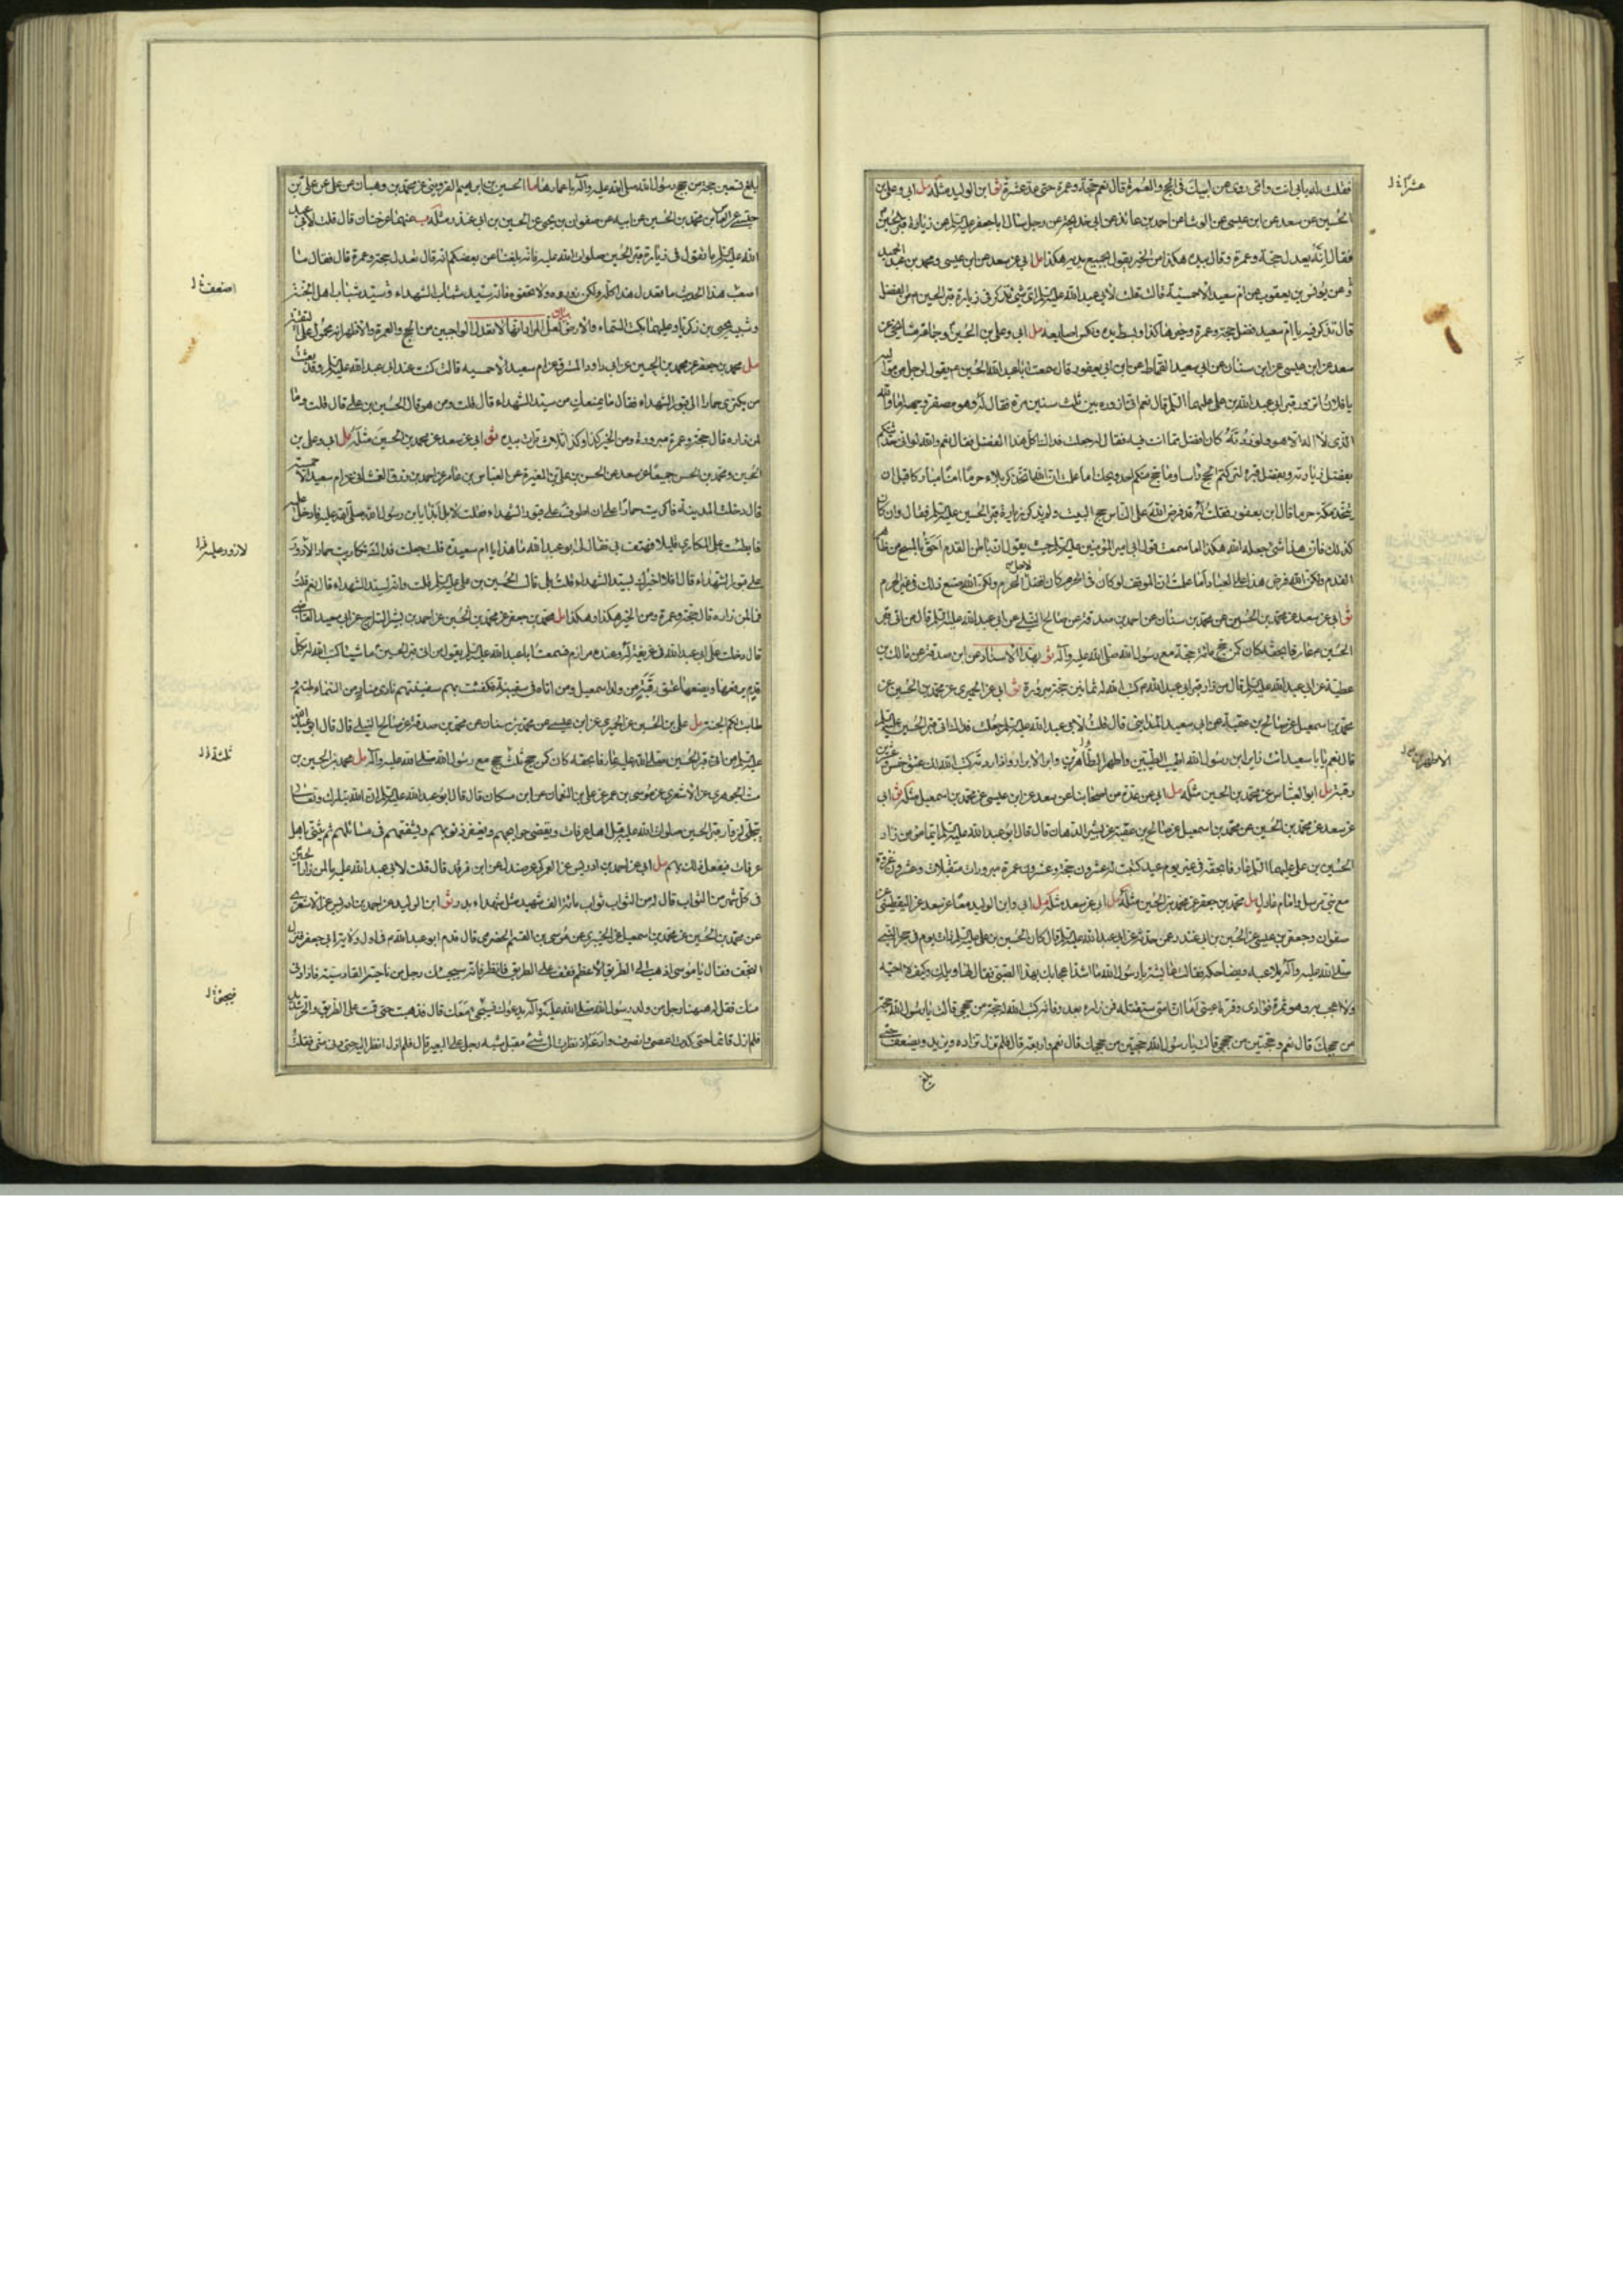 فقلت له بابي انت وامي روى عن ابيك في الحج والعمرة قال نعم حجة وعمرة حتى عد عشرة ثو ابن الوليد مثله مل ابي وعلي بن
الحسين عن سعد عن ابن عيسى عن الوشا عن احمد بن عائذ عن ابي خديجة عن رجل سال ابا جعفر عليه السلم عن زيارة قبر الحسين
فقال انه يعدل حجة وعمرة وقال بيده هكذا من الخير يقول بجميع يديه هكذا مل ابي عن سعد عن ابن عيسى ومحمد بن عبد الحميد
عن يونس بن يعقوب عن ام سعيد الاحمسية قالت قلت لابي عبد الله عليه السلم اي شي تذكر في زيارة قبر الحسين من الفضل
قال تذكر فيه يا ام سعيد فضل حجة وعمرة وخيرها كذا وبسط يديه ونكس اصابعه مل ابي وعلي بن الحسين وجماعة مشايخي عن
سعد عن ابن عيسى عن ابن سنان عن ابي سعيد القماط عن ابن ابي يعفور قال سمعت ابا عبد الله يقول لرجل من مواليه
يا فلان اتزور قبر ابي عبد الله بن علي عليهما السلم قال نعم اني ازوره بين ثلث سنين مرة فقال له وهو مصفر وجهه اما والله
الذي لا اله الا هو لو زرته كان افضل مما انت فيه فقال له جعلت فداك اكل هذا الفضل فقال نعم والله لو اني حدثتكم
بفضل زيارته وبفضل قبره لتركتم الحج راسا وما حج منكم احد ويحك اما علمت ان الله اتخذ كربلاء حرما امنا مباركا قبل ان
يتخذ مكة حرما قال ابن ابي يعفور فقلت له قد فرض الله على الناس حج البيت ولم يذكر زيارة قبر الحسين عليه السلم فقال وان كان
كذلك فان هذا شئ جعله الله هكذا اما سمعت قول ابي امير المؤمنين عليه السلم حيث يقول ان باطن القدم احق بالمسح من ظاهر
القدم ولكن الله فرض هذا على العباد اما علمت ان الموقف لو كان في الحرم كان افضل لاجل الحرم ولكن الله صنع ذلك في غير الحرم
ثو ابي عن سعد عن محمد بن الحسين عن محمد بن سنان عن احمد بن صدقة عن صالح النيلي عن ابي عبد الله عليه السلم قال من اتى قبر
الحسين عارفا بحقه كان كمن حج مائة حجة مع رسول الله صلى الله عليه وآله ثو بهذا الاسناد عن ابن صدقة عن مالك بن
عطية عن ابي عبد الله عليه السلم قال من زار قبر ابي عبد الله كتب الله له ثمانين حجة مبرورة ثو ابي عن الحميري عن محمد بن الحسين عن
محمد بن اسمعيل عن صالح بن عقبة عن ابي سعيد المدايني قال قلت لابي عبد الله عليه السلم جعلت فداك اتي قبر الحسين عليه السلم
قال نعم يا با سعيد ائت قبر ابن رسول الله اطيب الطيبين واطهر الطاهرين وابر الابرار واذا زرته كتب الله لك عتق خمس وعشرين
رقبة مل ابو العباس عن محمد بن الحسين مثله مل ابي عن عدة من اصحابنا عن سعد عن ابن عيسى عن محمد بن اسمعيل مثله ثو ابي
عن سعد عن محمد بن الحسين عن محمد بن اسمعيل عن صالح بن عقبة عن بشير الدهان قال قال ابو عبد الله عليه السلم ايما مؤمن زار
الحسين بن علي عليهما السلم عارفا بحقه في غير يوم عيد كتبت له عشرون حجة وعشرون عمرة مبرورات متقبلات وعشرون غزوة
مع نبي مرسل وامام عادل مل محمد بن جعفر عن محمد بن الحسين مثله مل ابي عن سعد مثله مل ابي وابن الوليد معا عن سعد عن اليقطيني عن
صفوان وجعفر بن عيسى عن الحسين بن ابي غندر عمن حدثه عن ابي عبد الله عليه السلم قال كان الحسين بن علي عليه السلم ذات يوم في حجر النبي
صلى الله عليه وآله يلاعبه ويضاحكه فقالت عايشة يا رسول الله ما اشد اعجابك بهذا الصبي فقال لها ويلك وكيف لا احبه
ولا اعجب به وهو ثمرة فؤادي وقرة عيني اما ان امتي ستقتله فمن زاره بعد وفاته كتب الله له حجة من حججي قالت يا رسول الله حجة
من حججك قال نعم وحجتين من حججي قالت يا رسول الله حجتين من حججك قال نعم واربعة قال فلم تزل تزاده ويزيد ويضعف حتى
عشرة ل
بلغ
ابلغ تسعين حجة من حجج رسول الله صلى الله عليه وآله باعمارها ما الحسين بن ابراهيم القزويني عن محمد بن وهبان عن علي بن
حبشي عن العباس بن محمد بن الحسين عن ابيه عن صفوان بن يحيى عن الحسين بن ابي غندر مثله ب عنهما عن حنان قال قلت لابي عبد
الله عليه السلم ما تقول في زيارة قبر الحسين صلوات الله عليه فانه بلغنا عن بعضكم انه قال تعدل حجة وعمرة قال فقال ما
اصعب هذا الحديث ما تعدل هذا كله ولكن زوروه ولا تجفوه فانه سيد شباب الشهداء وسيد شباب اهل الجنة
وشبيه يحيى بن زكريا وعليهما بكت السماء والارض بيان لعل المراد انها لا تعدل الواجبين من الحج والعمرة والاظهر انه محمول على التقية
مل محمد بن جعفر عن محمد بن الحسين عن ابي داود المسترق عن ام سعيد الاحمسيه قالت كنت عند ابي عبد الله عليه السلم وقد بعثت
من يكتري حمارا الى قبور الشهداء فقال ما يمنعك من سيد الشهداء قال قلت ومن هو قال الحسين بن علي قال قلت وما
لمن زاره قال حجة وعمرة مبرورة ومن الخير كذا وكذا ثلاث مرات بيده ثو ابي عن سعد عن محمد بن الحسين مثله مل ابي وعلي بن
الحسين ومحمد بن الحسن جميعا عن سعد عن الحسن بن علي بن المغيرة عن العباس بن عامر عن احمد بن رزق الغمشاني عن ام سعيد الاحمسية
قال دخلت المدينة فاكتريت حمارا على ان اطوف على قبور الشهداء فقلت لا بل ابدا بابن رسول الله صلى الله عليه فادخل عليه
فابطئت على المكاري قليلا فهتف بي فقال لي ابو عبد الله ما هذا يا ام سعيدة قلت جعلت فداك تكاريت حمارا لادور
على قبور الشهداء قال افلا اخبرك بسيد الشهداء قلت بلى قال الحسين بن علي عليه السلم قلت وانه لسيد الشهداء قال نعم قلت
فما لمن زاره قال حجة وعمرة ومن الخير هكذا وهكذا مل محمد بن جعفر عن محمد بن الحسين عن احمد بن بشير السراج عن ابي سعيد القاضي
قال دخلت على ابي عبد الله في غريفة له وعنده مرازم فسمعت ابا عبد الله عليه السلم يقول من اتى قبر الحسين ماشيا كتب الله له بكل
قدم يرفعها ويضعها عتق رقبة من ولد اسمعيل ومن اتاه في سفينة فكفت بهم سفينتهم نادى مناد من السماء طبتم و
طابت لكم الجنة مل علي بن الحسين عن الحميري عن ابن عيسى عن محمد بن سنان عن محمد بن صدقة عن صالح النيلي قال قال ابو عبد الله
عليه السلم من اتى قبر الحسين صلى الله عليه عارفا بحقه كان كمن حج ثلث حجج مع رسول الله صلى الله عليه وآله مل محمد بن الحسين بن
مت الجوهري عن الاشعري عن موسى بن عمر عن علي بن النعمان عن ابن مسكان قال قال ابو عبد الله عليه السلم ان الله تبارك وتعالى
يتجلى لزوار قبر الحسين صلوات الله عليه قبل اهل عرفات ويقضي حوائجهم ويغفر ذنوبهم ويشفعهم في مسائلهم ثم يثني باهل
عرفات فيفعل ذلك بهم مل ابي عن احمد بن ادريس عن العمركي عن صندل عن ابن فرقد قال قلت لابي عبد الله عليه ما لمن زار الحسين
في كل شهر من الثواب قال له من الثواب ثواب مائة الف شهيد مثل شهداء بدر ثو ابن الوليد عن احمد بن ادريس عن الاشعري
عن محمد بن الحسين عن محمد بن اسمعيل عن الخيبري عن موسى بن القسم الحضرمي قال قدم ابو عبد الله في اول ولاية ابي جعفر فنزل
النجف فقال يا موسى اذهب الى الطريق الاعظم فقف على الطريق فانظر فانه سيجيئك رجل من ناحية القادسية فاذا دنى
منك فقل له ههنا رجل من ولد رسول الله صلى الله عليه وآله يدعوك فسيجئ معك قال فذهبت حتى قمت على الطريق والحر شديد
فلم ازل قائما حتى كدت اعصي وانصرف وادعه اذ نظرت الى شئ مقبل شبه رجل على البعير قال فلم ازل انظر اليه حتى دنى مني فقلت
اضعف ل
ثلثة ل
فيجئ ل